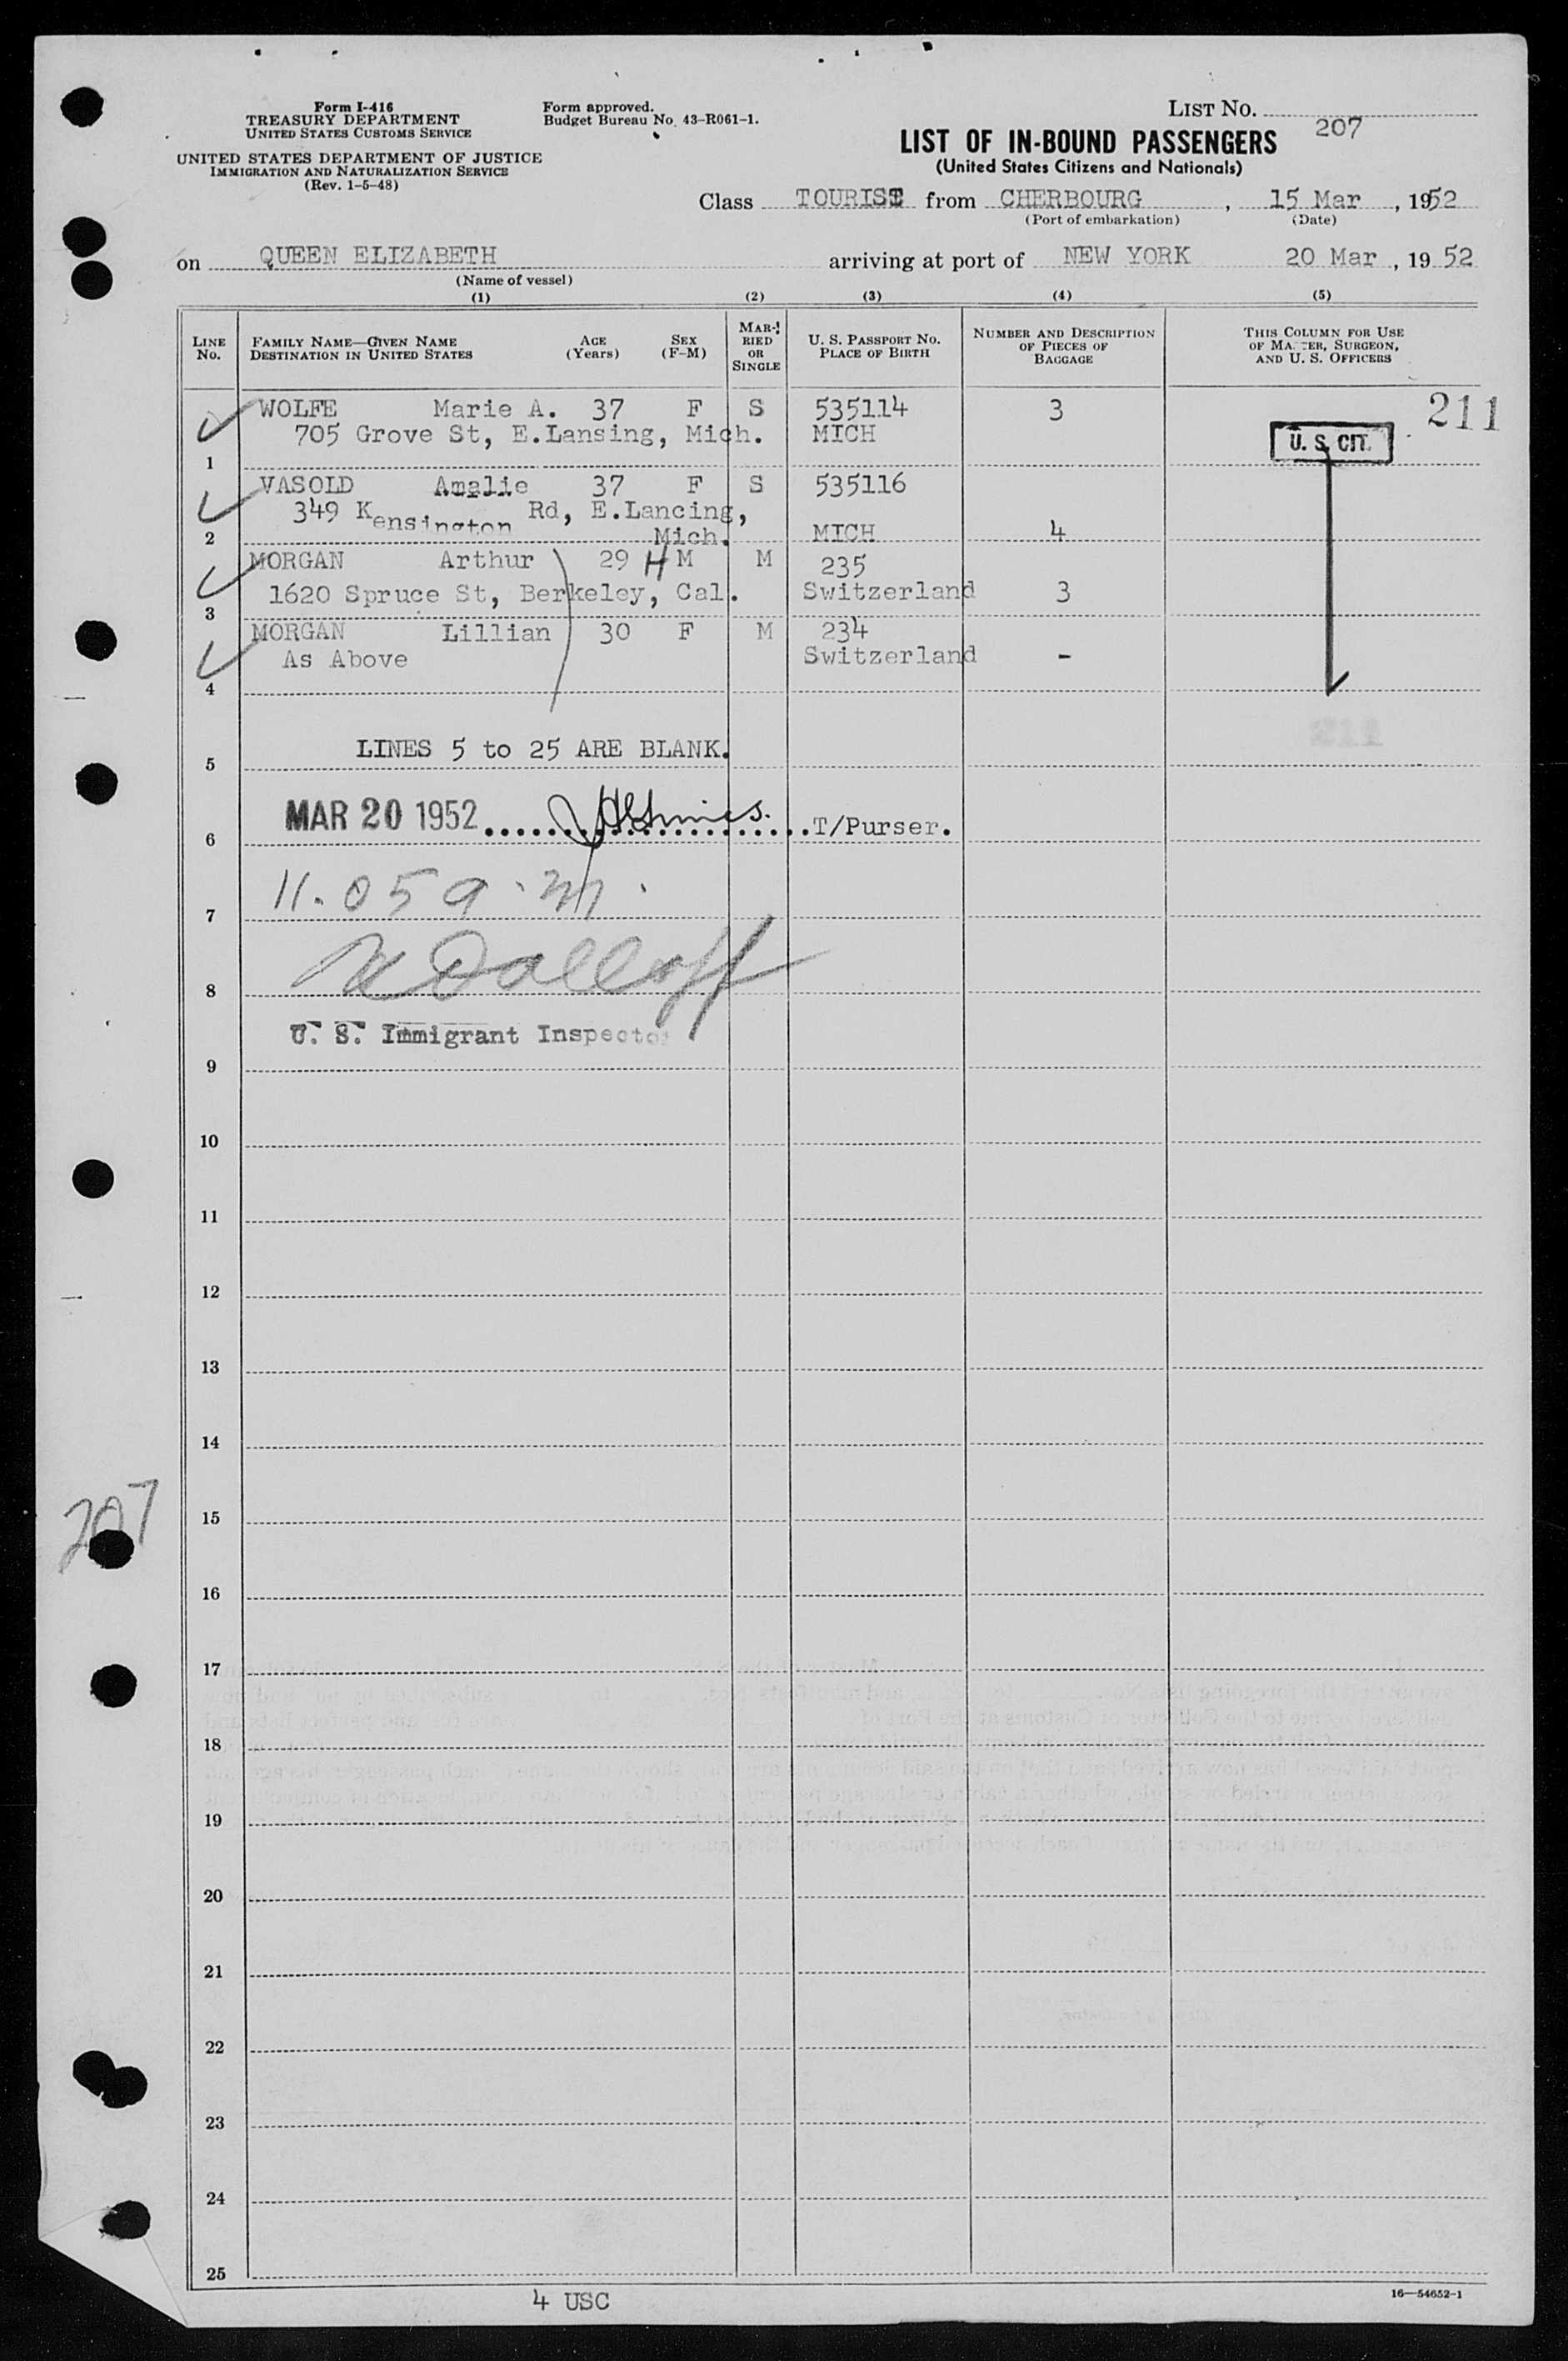 Form I-416
TREASURY DEPARTMENT
UNITED STATES CUSTOMS SERVICE
UNITED STATES DEPARTMENT OF JUSTICE
IMMIGRATION AND NATURALIZATION SERVICE
(Rev. 1-5-48)
Form approved.
Budget Bureau No. 43-R061-1.
LIST NO.
207
LIST OF IN-BOUND PASSENGERS
(United States Citizens and Nationals)
Class TOURIST from CHERBOURG , 15 Mar , 1952
(Port of embarkation) (Date)
on QUEEN ELIZABETH arriving at port of NEW YORK 20 Mar , 19 52
(Name of vessel)
(1) (2) (3) (4) (5)
LINE No.
FAMILY NAME—GIVEN NAME
DESTINATION IN UNITED STATES
AGE (Years)
SEX (F-M)
MARRIED OR SINGLE
U. S. PASSPORT NO.
PLACE OF BIRTH
NUMBER AND DESCRIPTION OF PIECES OF BAGGAGE
THIS COLUMN FOR USE OF MASTER, SURGEON, AND U. S. OFFICERS
WOLFE Marie A. 37 F S 535114 3 211
705 Grove St, E.Lansing, Mich. MICH U. S. CIT.
1
VASOLD Amalie 37 F S 535116
349 Kensington Rd, E.Lancing,
2 Mich. MICH 4
MORGAN Arthur 29 H M M 235
1620 Spruce St, Berkeley, Cal. Switzerland 3
3
MORGAN Lillian 30 F M 234
As Above Switzerland -
4
211
LINES 5 to 25 ARE BLANK.
5
MAR 20 1952 T/Purser.
6
11.05 a.m.
7
8
U. S. Immigrant Inspector
9
10
11
12
13
14
207
15
16
17
18
19
20
21
22
23
24
25
4 USC
16—54652-1